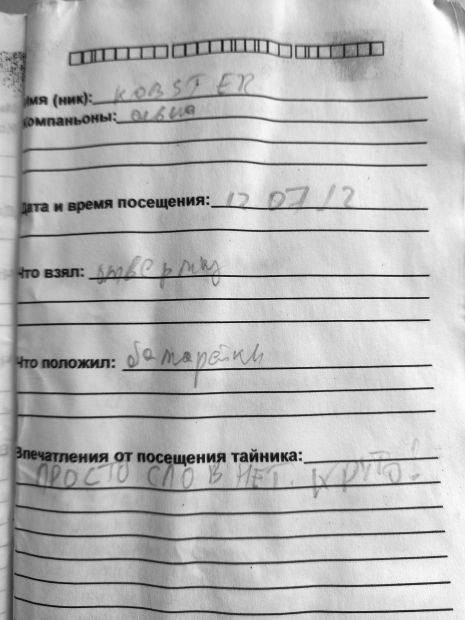 Имя (ник): KOBSTER
Компаньоны:
Дата и время посещения: 12 07 12
Что взял: отвертку
Что положил: батарейки
Впечатления от посещения тайника:
ПРОСТО СЛОВ НЕТ. КРУТО!